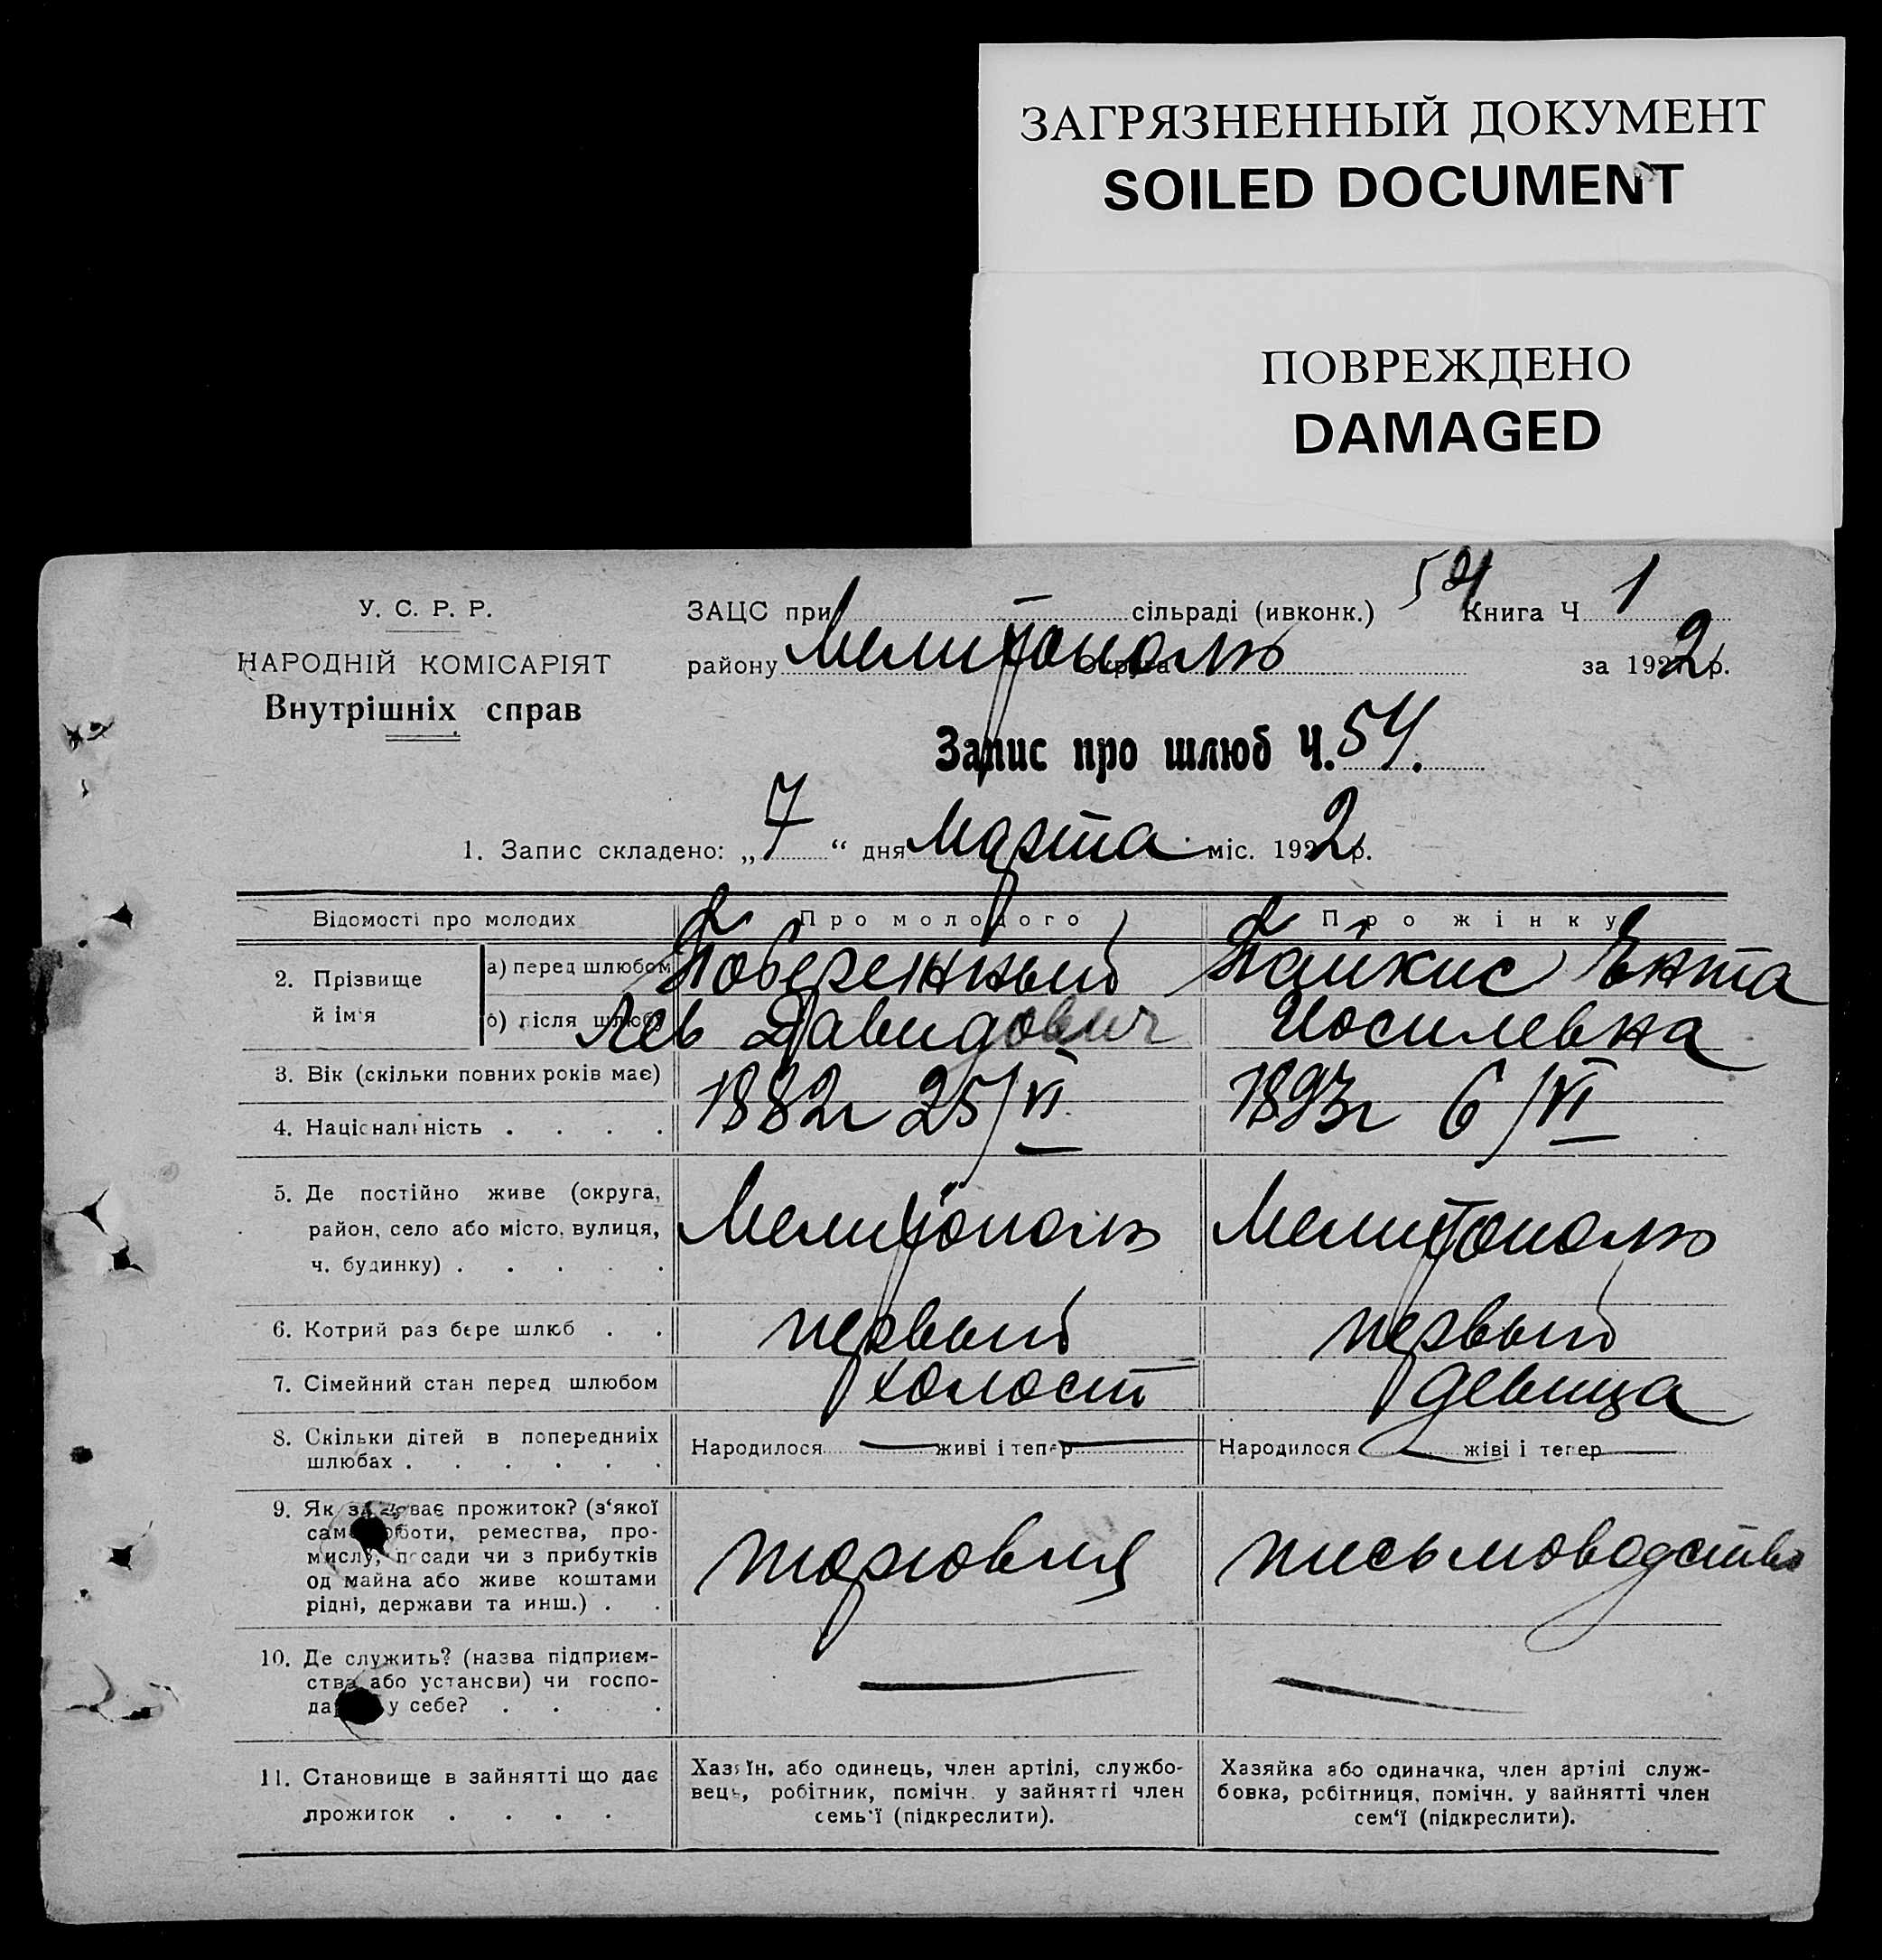 ЗАГРЯЗНЕННЫЙ ДОКУМЕНТ
SOILED DOCUMENT
ПОВРЕЖДЕНО
DAMAGED
У. С. Р. Р.
НАРОДНІЙ КОМІСАРІЯТ
Внутрішніх справ
ЗАЦС при сільраді (ивконк.) 54 Книга Ч 1
району Мелитополь округа за 1922 р.
Запис про шлюб Ч. 54.
1. Запис складено: „7“ дня Марта міс. 1922 р.
Відомості про молодих Про молодого Про жінку
2. Прізвище й ім'я
а) перед шлюбом Побережный Пайкис Ента
б) після шлюбу Лев Давидович Иосилевна
3. Вік (скільки повних років має) 1882 г 25/VI 1893 г 6/VI
4. Національність . . . .
5. Де постійно живе (округа,
район, село або місто, вулиця,
ч. будинку) . . . . .
Мелитополь Мелитополь
6. Котрий раз бере шлюб . . первый первый
7. Сімейний стан перед шлюбом холост девица
8. Скільки дітей в попередніх
шлюбах . . . . . .
Народилося — живі і тепер — Народилося — жіві і тепер —
9. Як здобуває прожиток? (з‘якої
само роботи, ремества, про-
мислу, посади чи з прибутків
од майна або живе коштами
рідні, держави та инш.) . .
торговля письмоводство
10. Де служить? (назва підприєм-
ства або установи) чи госпо-
дарює у себе? . . . .
— —
11. Становище в зайнятті що дає
прожиток . . . .
Хазяїн, або одинець, член артілі, службо-
вець, робітник, помічн. у зайнятті член
семь'ї (підкреслити).
Хазяйка або одиначка, член артілі служ-
бовка, робітниця, помічн. у зайнятті член
сем‘ї (підкреслити).